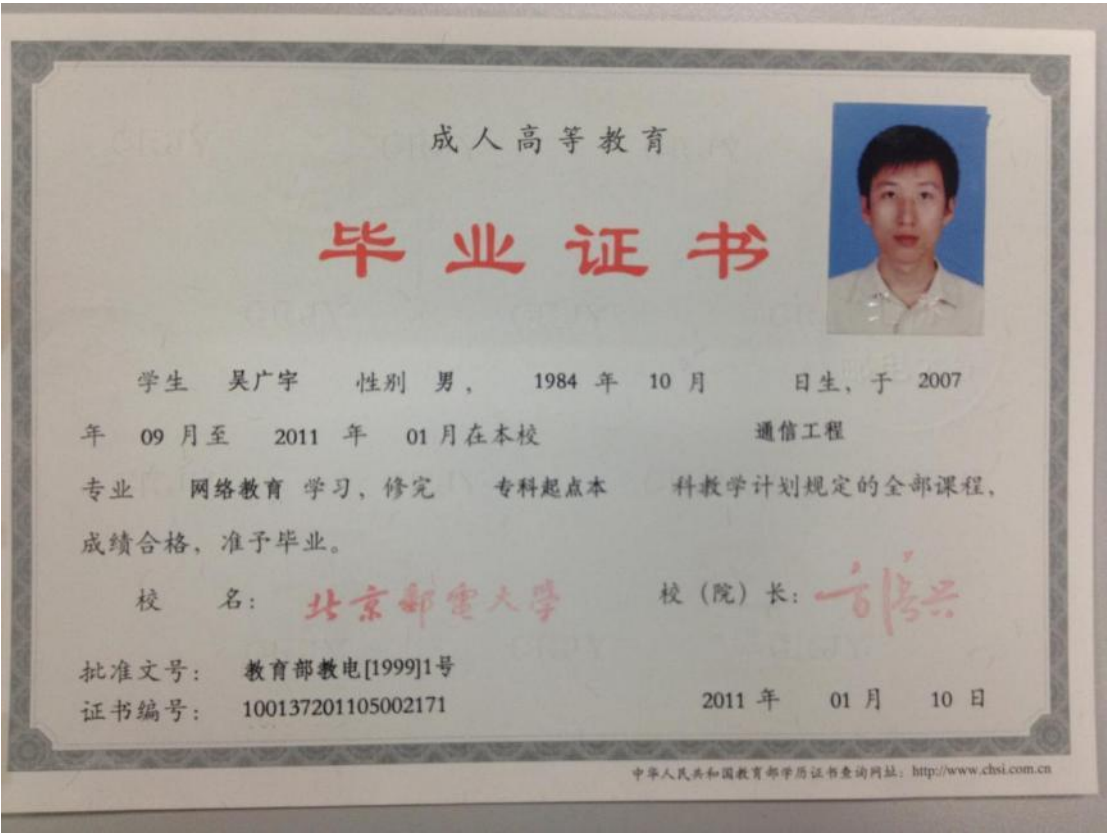 成人高等教育
毕业证书
学生 吴广宇 性别 男， 1984 年 10 月 日生，于 2007
年 09 月至 2011 年 01 月在本校 通信工程
专业 网络教育 学习，修完 专科起点本 科教学计划规定的全部课程，
成绩合格，准予毕业。
校 名： 北京邮电大学 校（院）长： 方滨兴
批准文号： 教育部教电[1999]1号
证书编号： 100137201105002171 2011 年 01 月 10 日
中华人民共和国教育部学历证书查询网址：http://www.chsi.com.cn